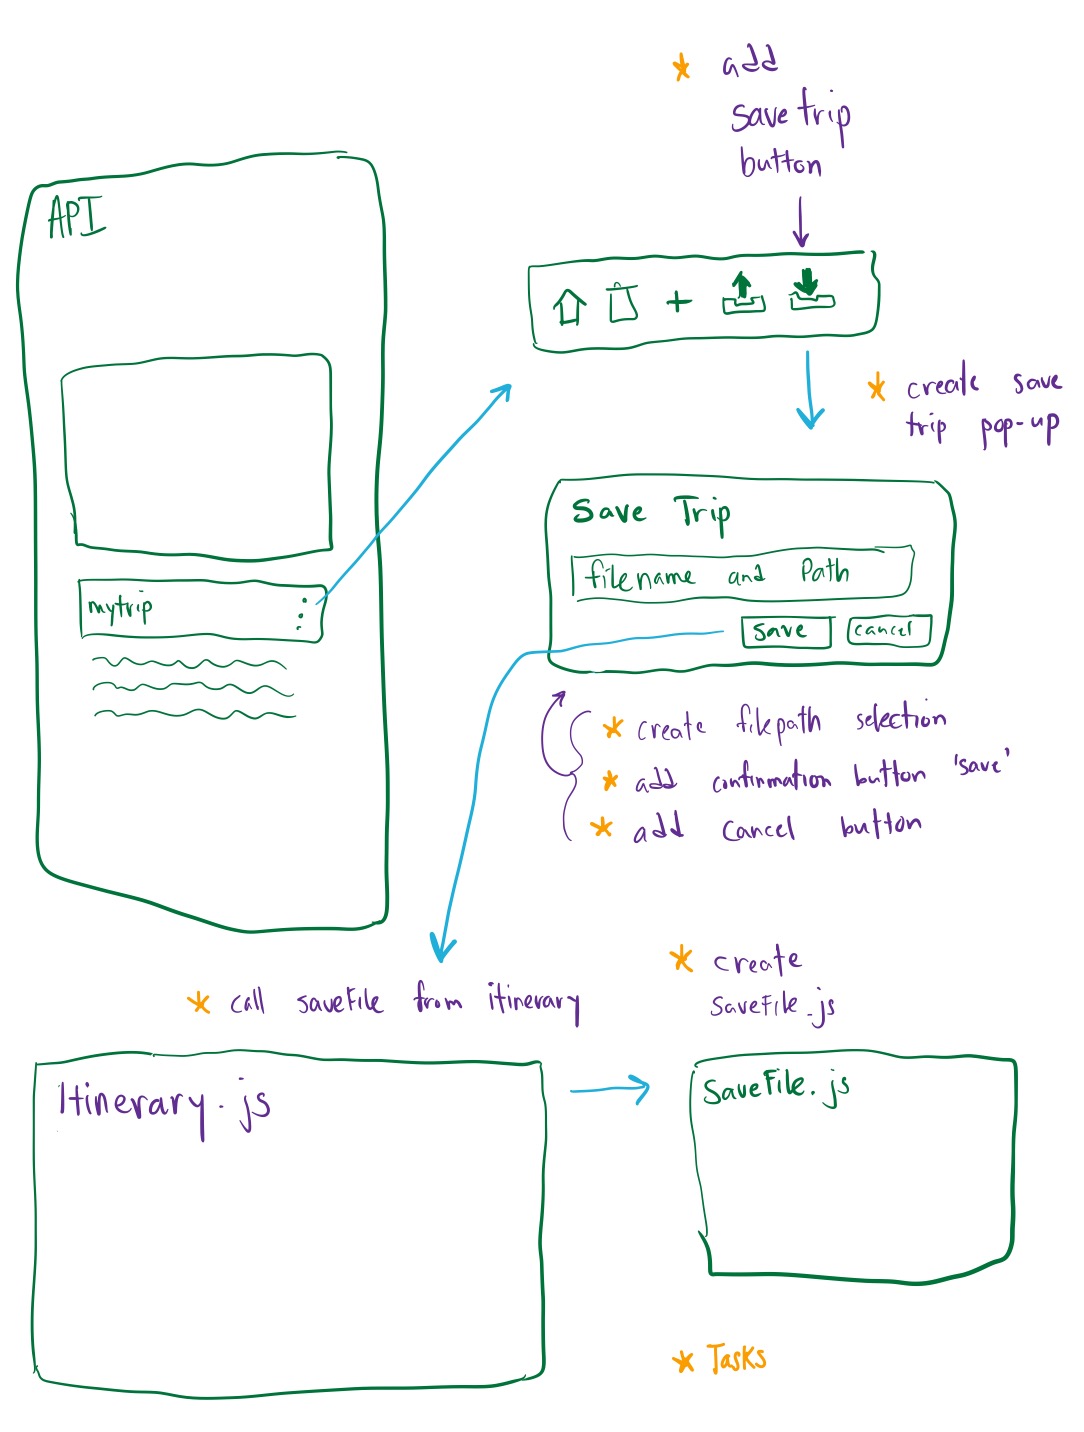 * add
save trip
button
API
* create save
trip pop-up
Save Trip
filename and Path
save
cancel
mytrip
* create filepath selection
* add confirmation button 'save'
* add cancel button
* call saveFile from itinerary
* create
SaveFile.js
Itinerary.js
SaveFile.js
* Tasks